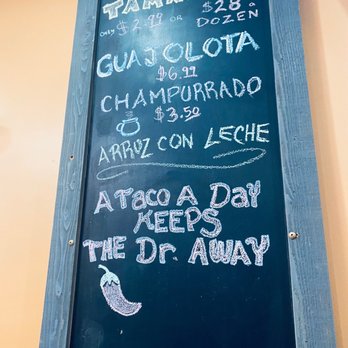 only $2.99 OR $28 a
DOZEN
GUAJOLOTA
$6.99
CHAMPURRADO
$3.50
ARROZ CON LECHE
A TACO A DAY
KEEPS
THE Dr. AWAY